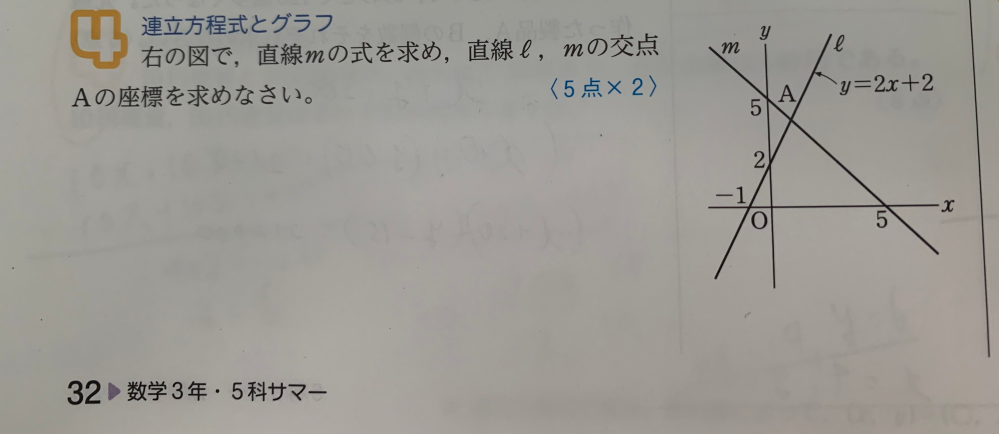 4
連立方程式とグラフ
右の図で，直線mの式を求め，直線ℓ，mの交点
Aの座標を求めなさい。
〈5点×2〉
m
y
ℓ
y=2x+2
5
A
2
-1
O
5
x
32▶数学3年・5科サマー